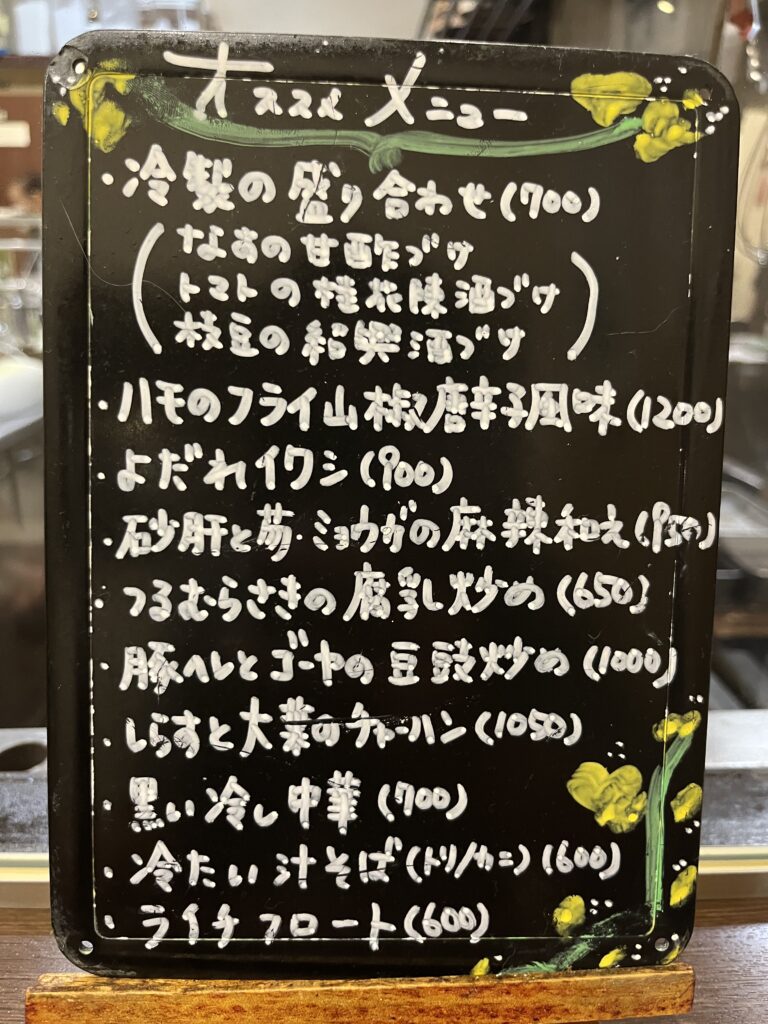 オススメ メニュー
・冷製の盛り合わせ(700)
なすの甘酢づけ
トマトの桂花陳酒づけ
枝豆の紹興酒づけ
・ハモのフライ山椒唐辛子風味(1200)
・よだれイワシ(900)
・砂肝と茗・ミョウガの麻辣和え(950)
・つるむらさきの腐乳炒め(650)
・豚ヘレとゴーヤの豆豉炒め(1000)
・しらすと大葉のチャーハン(1050)
・黒い冷し中華(700)
・冷たい汁そば(トリ/カニ)(600)
・ライチフロート(600)